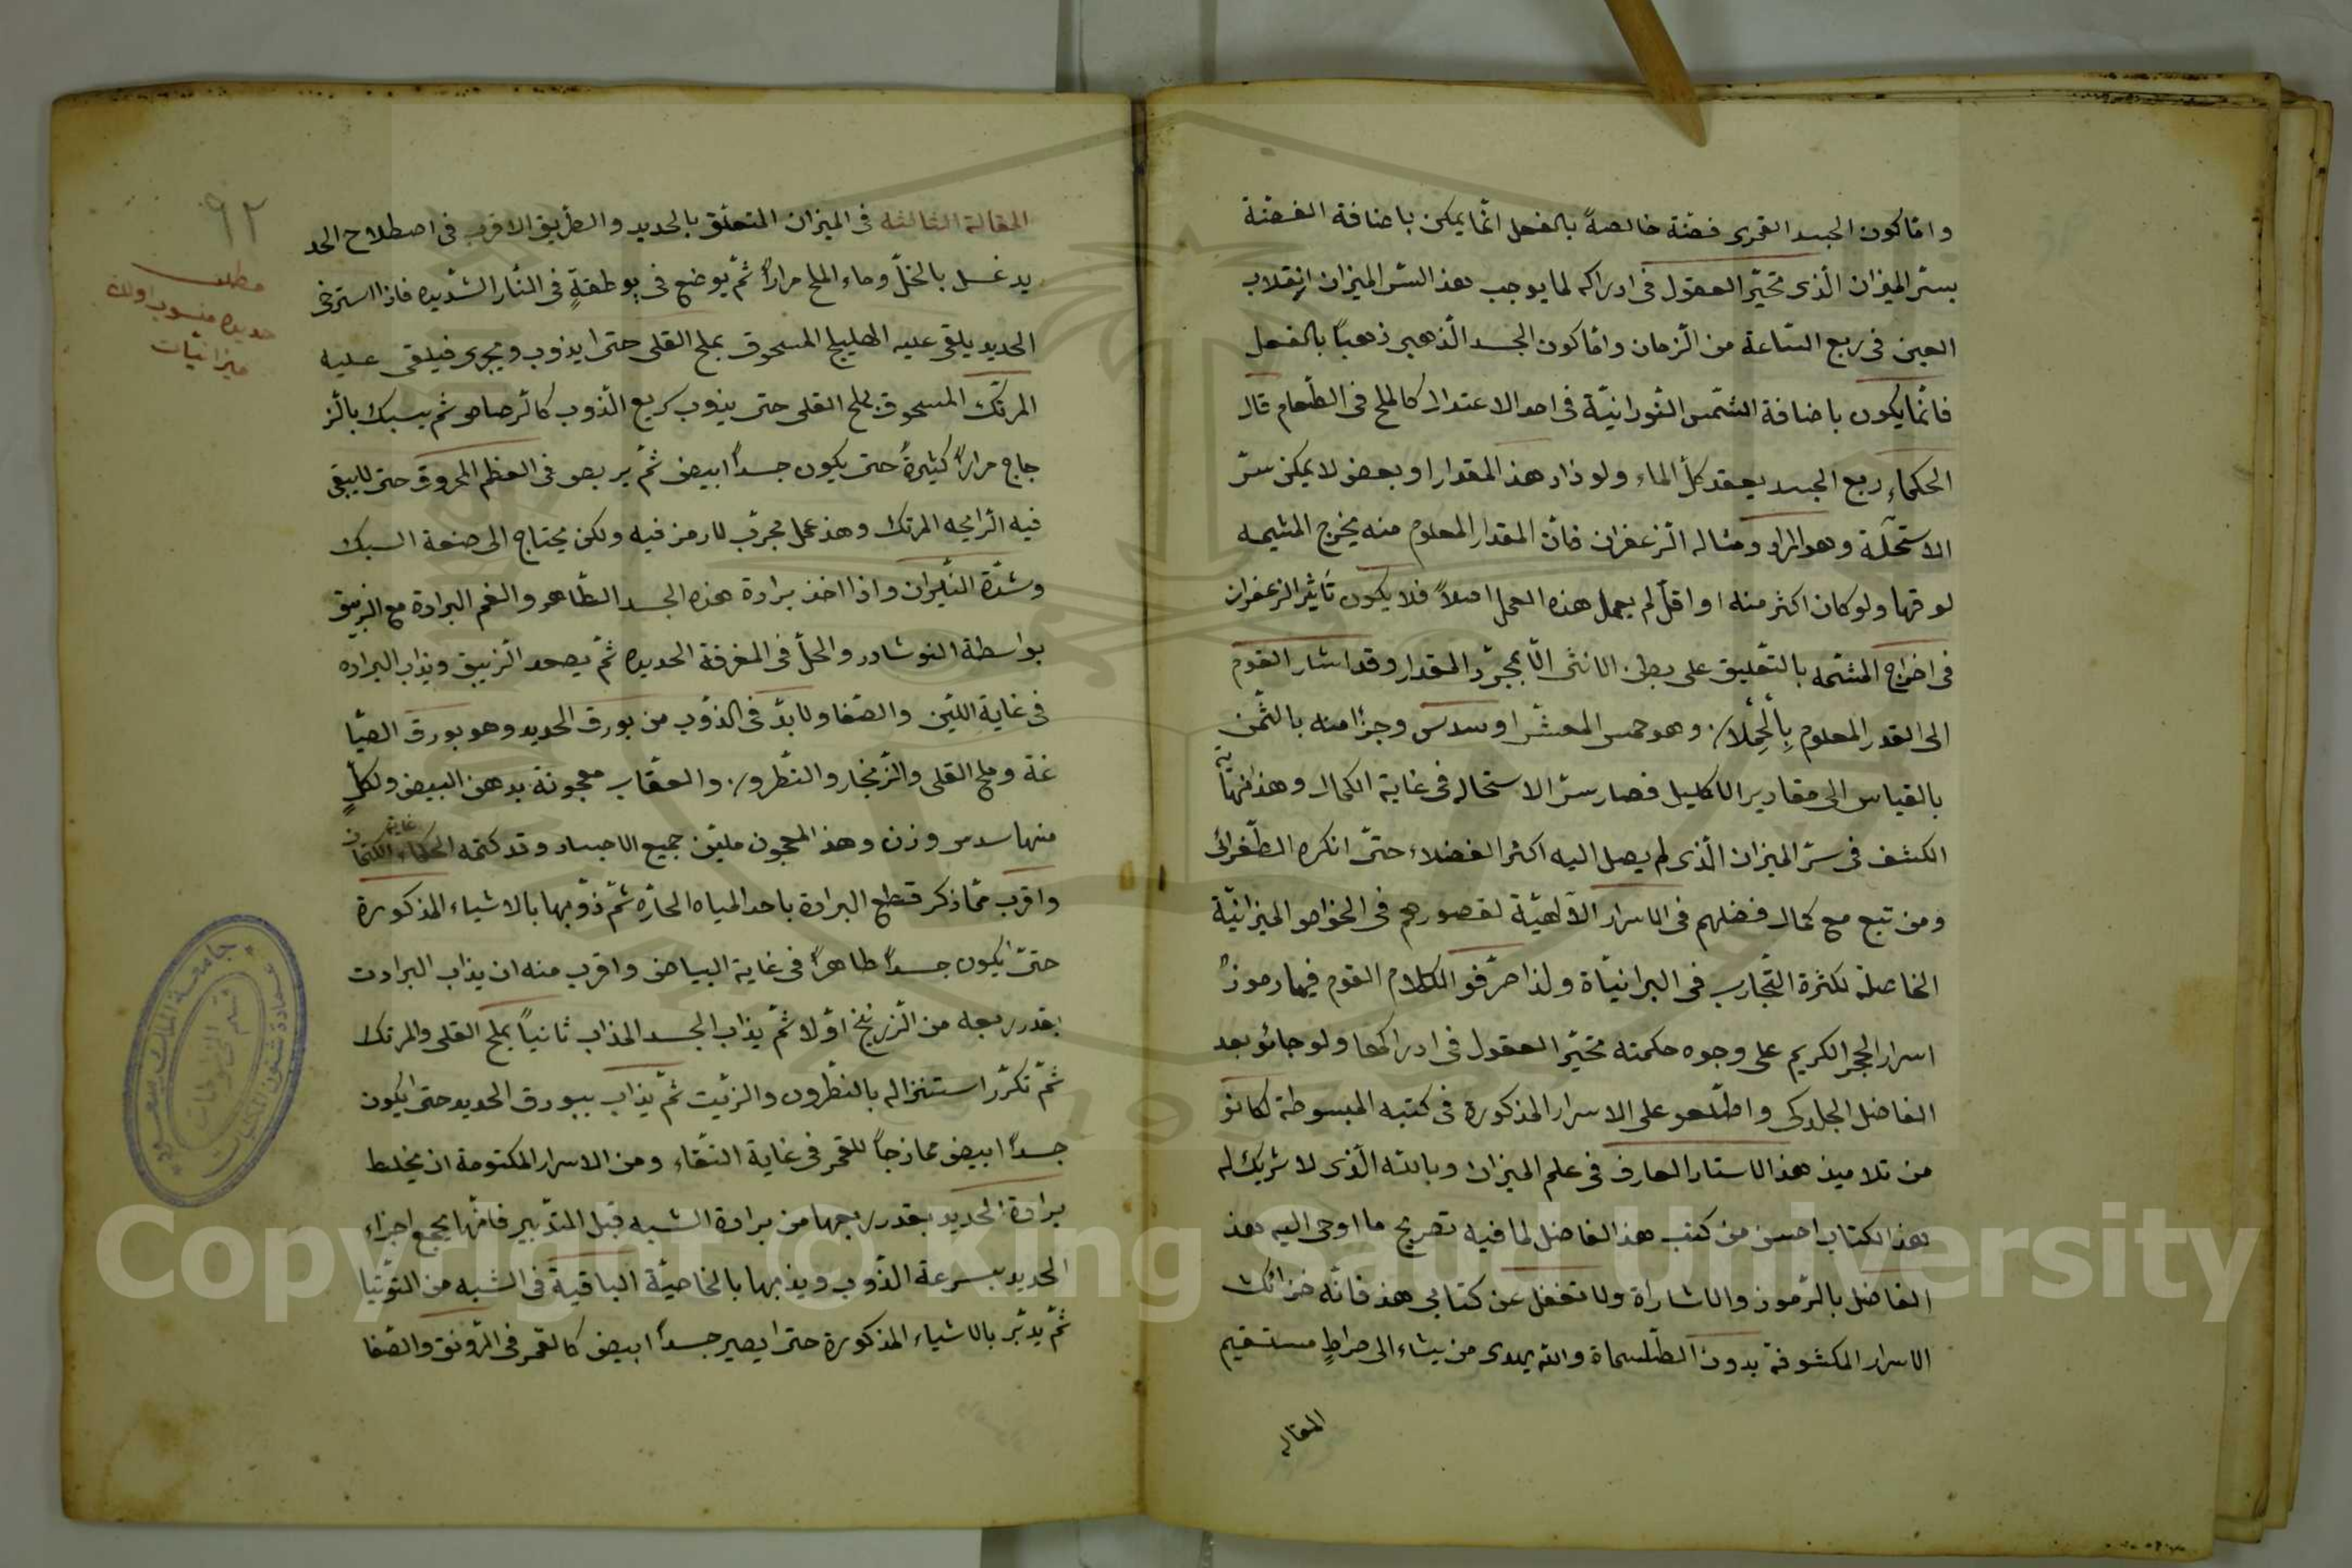 واما كون الجسد القمرى فضّة خالصةً بالفعل انّما يمكن باضافة الفضّة
بسرّ الميزان الّذى تحيّر العقول فى ادراكه لما يوجب هذ السّر الميزان انقلاب
العين فى ربع السّاعة من الزّمان وامّا كون الجسد الذّهبى ذهباً بالفعل
فانّما يكون باضافة الشّمس النّورانيّة فى احد الاعتدال كالملح فى الطّعام قال
الحكماء ربع الجسد يعقد كلّ الماء ولو زاد هذ المقدار او بعض لا يمكن سرّ
الاستحآلة وهو المراد ومثاله الزّعفران فانّ المقدار المعلوم منه يخرج المشيمه
لوقها ولو كان اكثر منه او اقلّ لم يعمل هذه العمل اصلاً فلا يكون تأثير الزعفران
فى اخراج المشتمه بالتّعليق على بطن الانثى الّا بمجرّد المقدار وقد اشار القوم
الى القدر المعلوم وهو خمس المعشّر او سدس وجزأ منه بالثّمن
بالقياس الى مقادير الاكليل فصار سرّ الاستحاله فى غاية الكمال وهذ نهاية
الكشف فى سرّ الميزان الّذى لم يصل اليه اكثر الفضلاء حتّى انكره الطّغرائ
ومن تبع مع كمال فضلهم فى الاسرار الآلهيّة لقصورهم فى الخواص الميزانيّة
الخاصلة لكثرة التّجارب فى البرانيّاة ولذا صرّفو الكلام القوم فيها رموز
اسرار الحجر الكريم على وجوه حكمته تحيّر العقول فى ادراكها ولو جائو بعد
الفاضل الجلدكى واطّلعو على الاسرار المذكورة فى كتبه المبسوطة لكانو
من تلاميذ هذ الاستاد العارف فى علم الميزان وبالله الّذى لا شريك له
هذ الكتاب احسن من كتب هذ الفاضل لما فيه تصريح ما اوحى اليه هذ
الفاضل بالرّموز والاشاراة ولا تغفل عن كتابى هذ فانّه خزائن
الاسرار المكشوفة بدون الطّلسماة والله يهدى من يشاء الى صراطٍ مستقيم
المقاله
٩٢
المقالة الثالثه فى الميزان المتعلّق بالحديد والطّريق الاقرب فى اصطلاح الحد
يد غسل بالخلّ وماء الملح مراراً ثمّ يوضع فى بوطقةٍ فى النّار الشّديده فاذا استرخى
الحديد يلقى عليه الهليلج المسحوق بملح القلى حتى ايذوب ويجرى فيلقى عليه
المرتك المسحوق بملح القلى حتى يذوب كريع الذّوب كالرّصاص ثم يسبك بالزّ
جاج مراراً كثيرةً حتى يكون جسداً ابيض ثمّ يربص فى العظم المحروق حتى لا يبقى
فيه الرّايحه المرتك وهذ عمل مجرّب لا رمز فيه ولكن يحتاج الى صنعة السبك
وشدّة النّيران واذا اخذ برادة هذه الجسد الطّاهر والغم البرادة مع الزيبق
بواسطة النوشادر والخلّ فى المغرفة الحديده ثمّ يصعد الزّيبق ويذاب البراده
فى غاية اللّين والصّفا ولا بدّ فى الذوّب من بورق الحديد وهو بورق الصّيا
غة وملح القلى والزّنجار والنّطرون والعقاب معجونة بدهن البيض ولكلٍّ
منها سدس وزن وهذ المعجون مليّن جميع الاجساد وقد كتمه الحكماء غاية الكتمان
واقرب ممّا ذكر قتطع البرادة باحد المياه الحادّه ثمّ ذوّبها بالاشياء المذكورة
حتىّ يكون جسداً طاهراً فى غاية البياض واقرب منه ان يذاب البرادت
بقدر ربعه من الزّرنيخ اوّلا ثمّ يذاب الجسد المذاب ثانياً بملح القلى والمرتك
ثمّ تكرّر استنزاله بالنطّرون والزّيت ثمّ يذاب ببورق الحديد حتى ايكون
جسداً ابيض ممازجاً للقمر فى غاية النقّاء ومن الاسرار المكتومة ان يخلط
برادة الحديد بقدر ربعها من برادة الشبه قبل التدّبير فانّها يجمع اجزاء
الحديد بسرعة الذّوب ويذبها بالخاصيّة الباقية فى الشبه من التوّتيا
ثمّ يدبّر بالاشياء المذكورة حتى ايصير جسداً ابيض كالقمر فى الرّونق والصّفا
مطلب
حديده منسوب اولان
ميزانيّات
جامعة الملك سعود
عمادة شئون المكتبات
قسم المخطوطات
Copyright © King Saud University